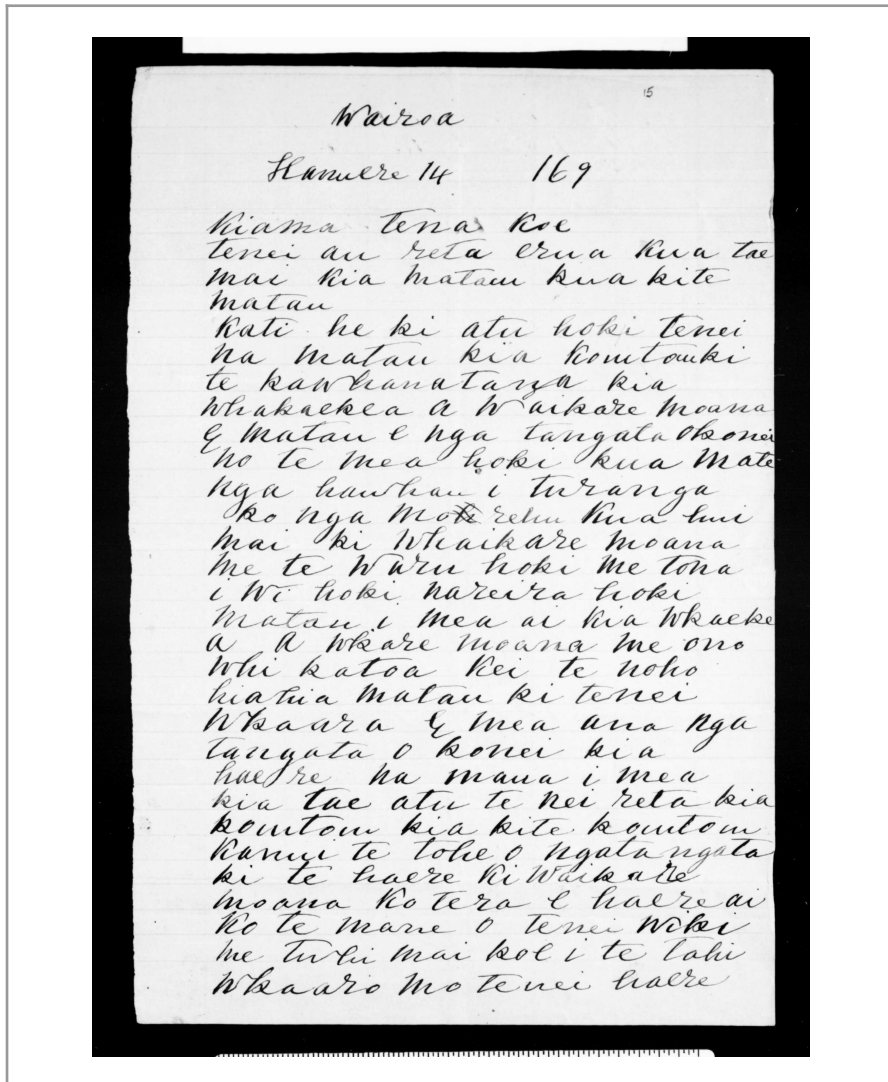 15
Wairoa
Hanuere 14 169
Kiama tena koe
tenei au reta erua kua tae
mai kia matau kua kite
matau
Kati he ki atu hoki tenei
na matau kia koutouki
te kawhanatanga kia
whakaekea a Waikare moana
E matau e nga tangata Okonei
no te mea hoki kua mate
nga hawhau i turanga
ko nga morehu kua hui
mai ki Whaikare moana
me te Waru hoki me tona
i Wi hoki nareira hoki
matau i mea ai kia wkaeke
a a wkare moana me ono
whi katoa kei te noho
hiahia matau ki tenei
wkaara E mea ana nga
tangata o konei kia
haere na mana i mea
kia tae atu te nei reta kia
koutou kia kite koutou
Kanui te tohe o ngata ngata
ki te haere ki Waikare
moana Ko tera e haere ai
ko te mane o tenei wiki
me tuhi mai koe i te tahi
wkaaro mo tenei haere